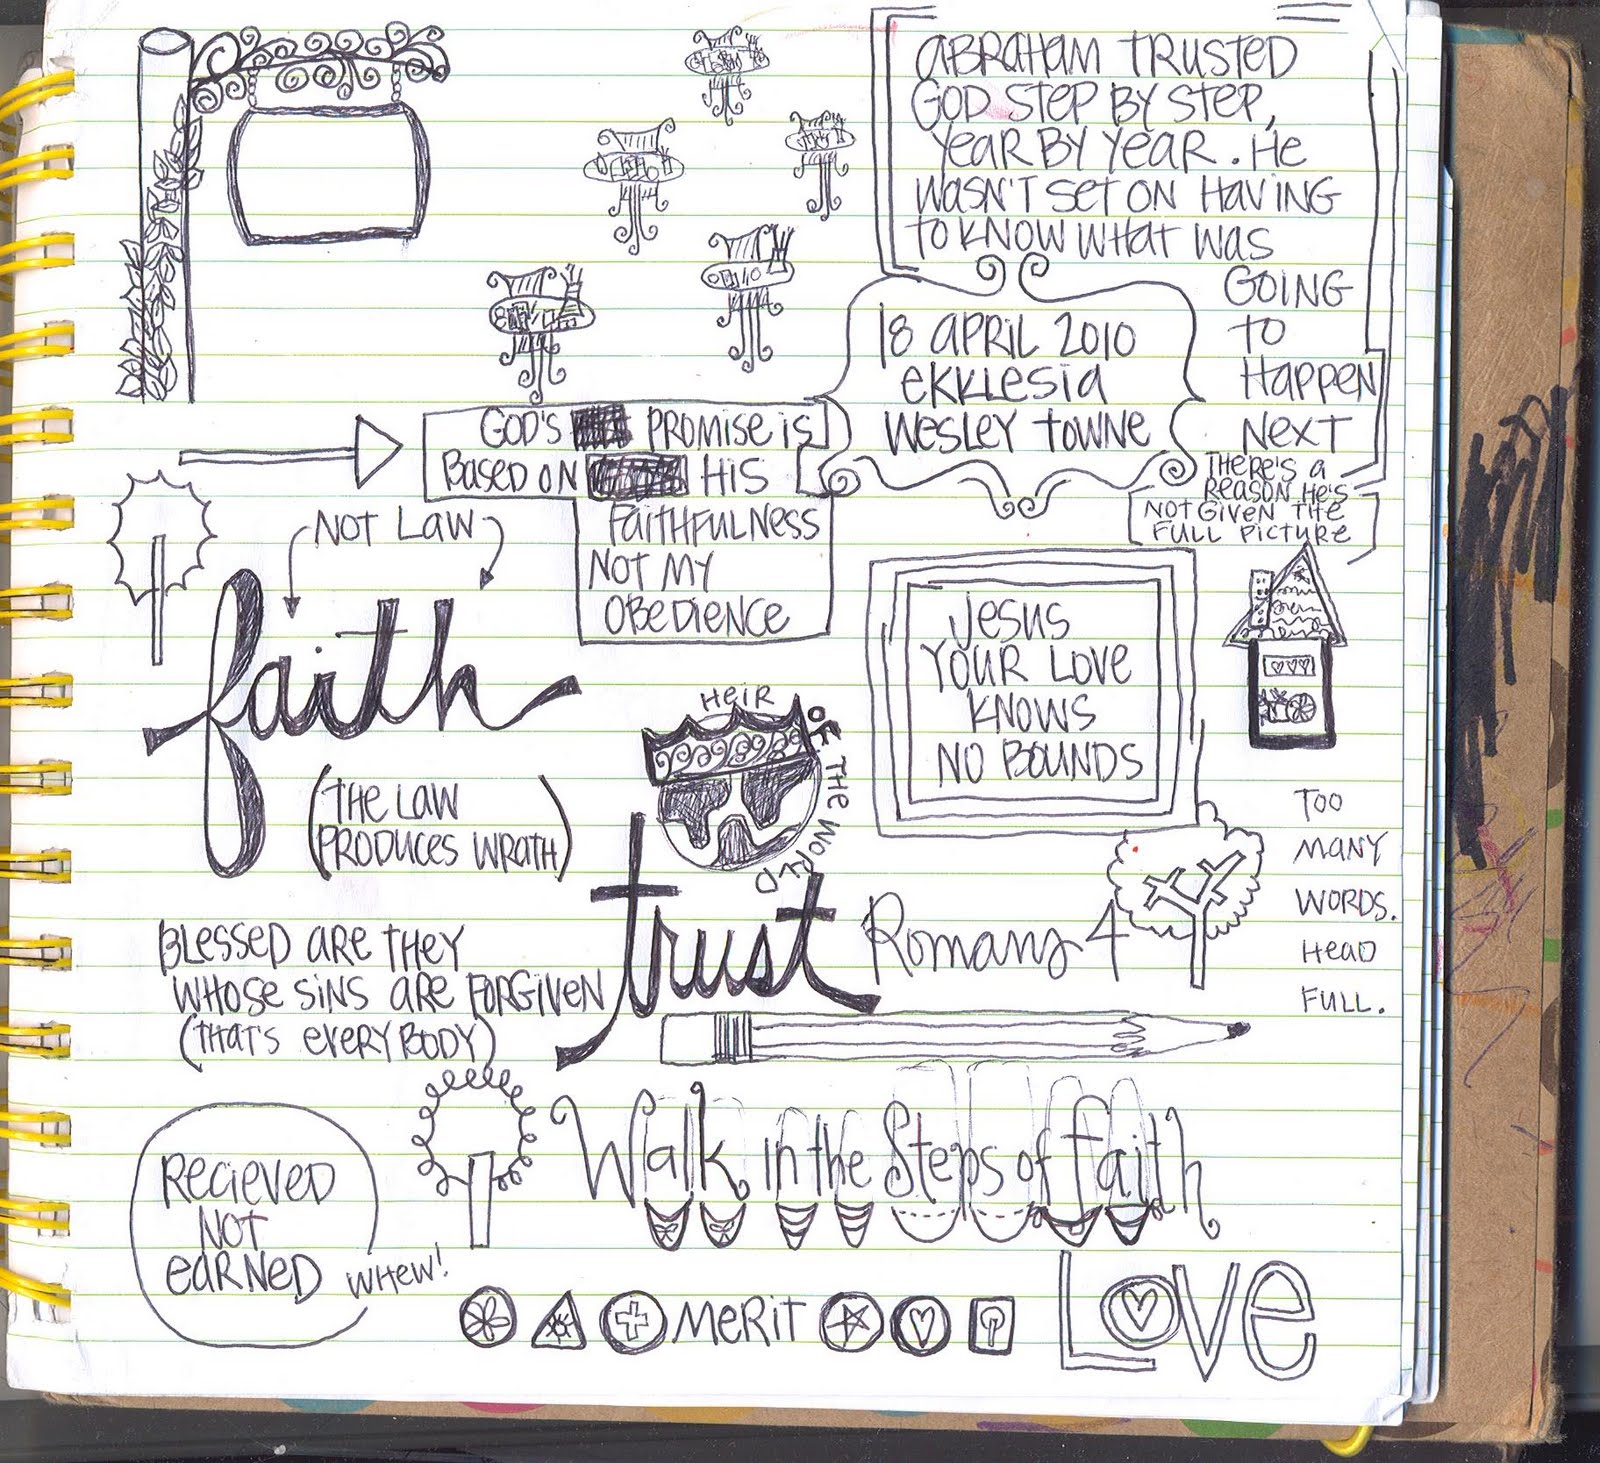 ABRAHAM TRUSTED
GOD STEP BY STEP,
YEAR BY YEAR. HE
WASN'T SET ON HAVING
TO KNOW WHAT WAS
GOING
TO
HAPPEN
NEXT
THERE'S A
REASON HE'S
NOT GIVEN THE
FULL PICTURE
18 APRIL 2010
EKKLESIA
WESLEY TOWNE
GOD'S PROMISE IS
BASED ON HIS
FAITHFULNESS
NOT MY
OBEDIENCE
NOT LAW
faith
(THE LAW
PRODUCES WRATH)
JESUS
YOUR LOVE
KNOWS
NO BOUNDS
HEIR OF THE WORLD
TOO
MANY
WORDS.
HEAD
FULL.
trust
Romans 4
BLESSED ARE THEY
WHOSE SINS ARE FORGIVEN
(THAT'S EVERYBODY)
Walk in the Steps of faith
RECIEVED
NOT
EARNED
WHEW!
MERIT
LOVE